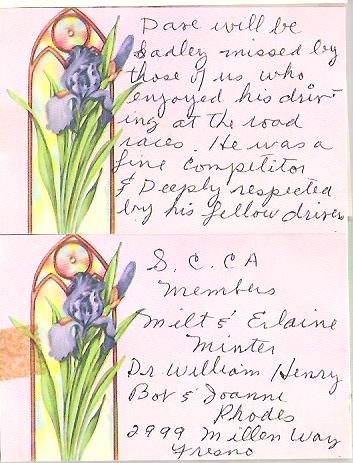 Dave will be
sadley missed by
those of us who
enjoyed his driv
ing at the road
races. He was a
fine competitor
& Deeply respected
by his fellow drivers
S. C. C A
members
Milt & Elaine
Minter
Dr. William Henry
Bob & Joanne
Rhodes
2999 Millen Way
Fresno